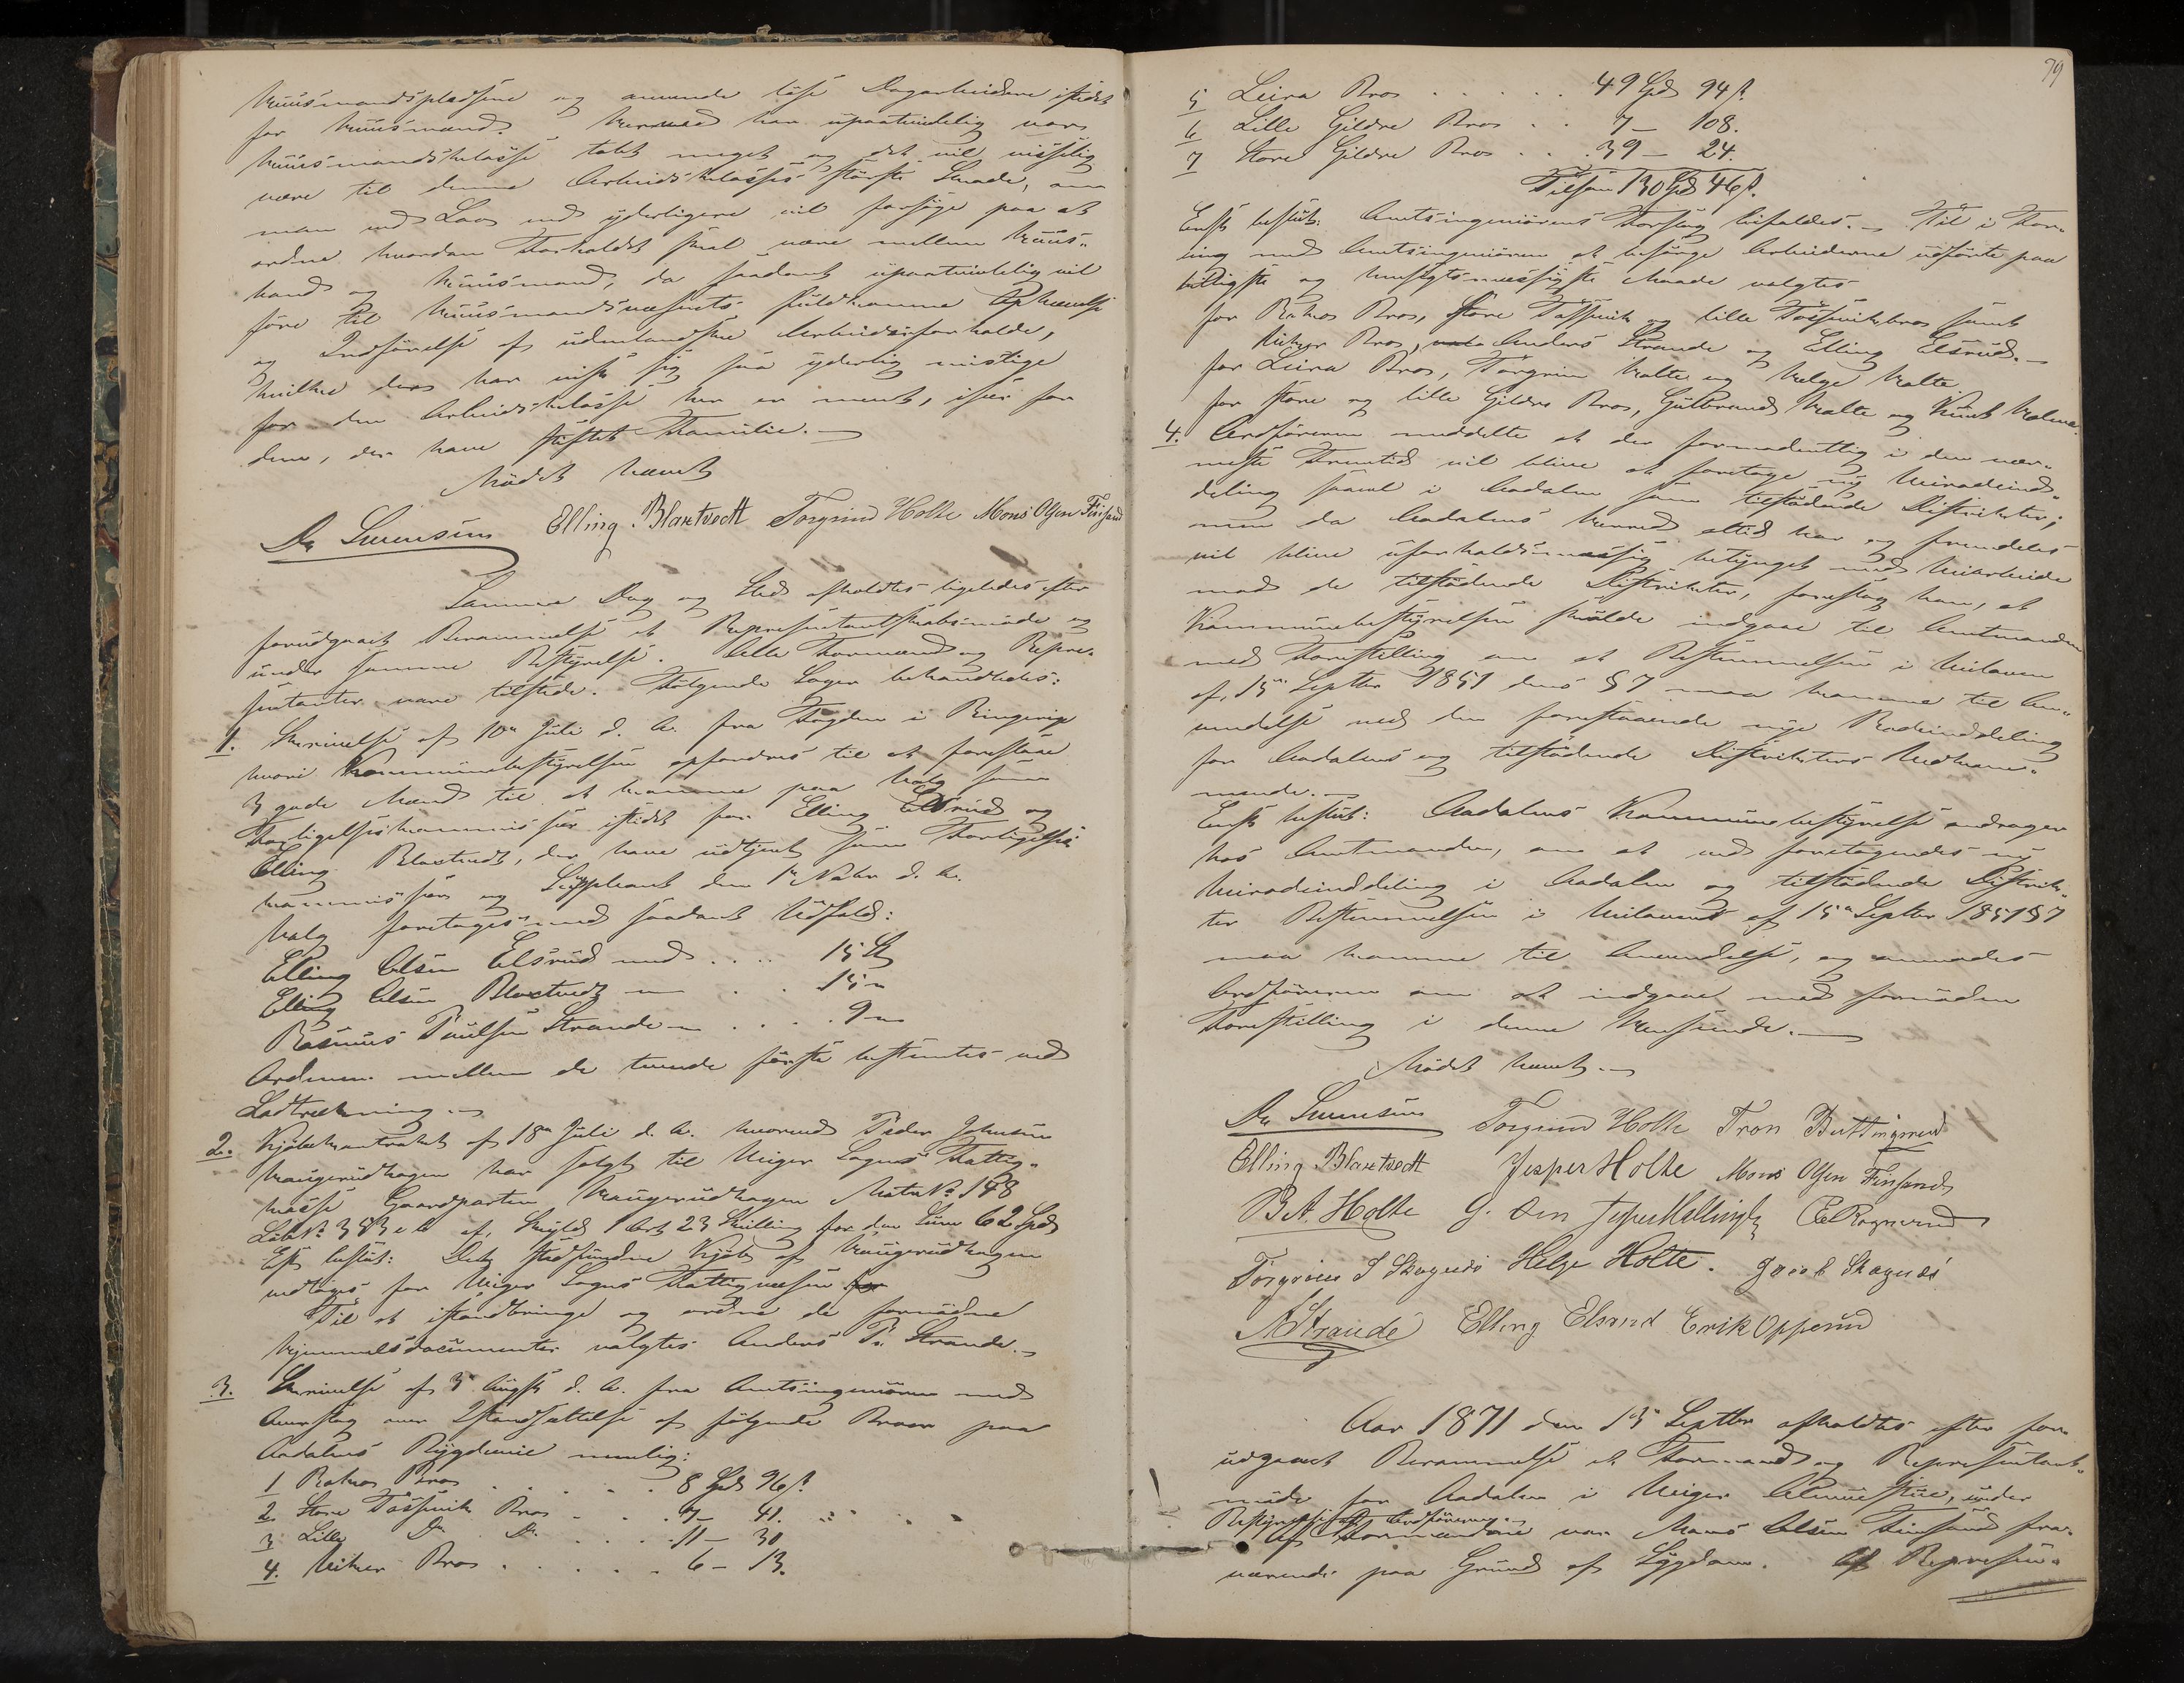 Huusmandspladsene og anvende løse Dagarbeidere istedet
for Huusmænd. Herved har upaatvivlelig vore
Huusmandsklasse tabt meget og det vil visselig
være til denne Arbeidsklasses største Skade, om
man ved Lov end yderligere vil forsøge paa at
ordne hvordan Forholdet skal være mellem Huus-
bond og Huusmand, da saadant upaatvivlelig vil
føre til Huusmandsvæsenets fuldkomne Ophævelse
og Indførelse af udenlandske Arbeidsforholde,
hvilke der har vist sig saa yderlig mislige
for den Arbeidsklasse her er nævnt, især for
dem, der have stiftet Familie.
Mødet hævet
Elling Blaxtvedt Torgrim Holte Mons Olsen Finsand
Samme Dag og Sted afholdtes ligeledes efter
forudgaaet Berammelse et Repræsentantskabsmøde og
under samme Bestyrelse. Alle Formænd og Repræ-
sentanter vare tilstede. Følgende Sager behandledes:
1. Skrivelse af 10de Juli d. A. fra Fogden i Ringerige
hvori Kommunebestyrelsen opfordres til at foreslaae
3 gode Mænd til at komme paa Valg som
Forligelseskommissær istedet for Elling Elsrud og
Elling Blaxtvedt, der have udtjent som Forligelses-
kommissær og Suppleant den 1ste Novbr d. A.
Valg foretoges med saadant Udfald:
Elling Olsen Elsrud med .... 15 St
Elling Olsen Blaxtvedt — . . 15 —
Rasmus Paulsen Strande — . . . . 9 —
Ordenen mellem de tvende første bestemtes ved
Lodtrækning. —
2. Kjøbekontrakt af 18de Juli d. A. hvorved Peder Johnsen
Haugerudhagen har solgt til Viger Sogns Fattig-
kasse Gaardparten Haugerudhagen Matr No 148
Løbe No 383 e b af Skyld 1 Ort 23 Skilling for den Sum 62 Spd
Eft. beslut: Det stedfundne Kjøb af Haugerudhagen
vedtages for Viger Sogns Fattigvæsen
Til at istandbringe og ordne de fornødne
Hjemmelsdocumenter valgtes Anders P. Strande. —
3. Skrivelse af 3 August d. A. fra Amtsingeniøren med
Overslag over Istandsættelse af følgende Broer paa
Aadalens Bygdevei nemlig:
1 Bro . . . . . 8 Spd 96 s.
2. Store Bro . . . 7 — 41.
3 Lille Do Do . . . . 11 — 30.
4. Bro . . . . . 6 — 13.
79
5 Leira Bro . . . . . 49 Spd 94 s.
6 Lille Gildre Bro . . 7 — 108.
7 Store Gildre Bro . . . 39 — 24.
Tilsam 130 Spd 46 s.
Enst beslut: Amtsingeniørens Forslag bifaldes. — Til i For-
ening med Amtsingeniøren at besørge Arbeiderne udførte paa
billigste og hensigtsmæssigste Maade valgtes
for Bro, Store og lille samt
Bro, Anders Strande og Elling Elsrud. —
for Leira Bro, Torgrim Holte og Helge Holte
for store og lille Gildre Bro, Gulbrand Holte og Knut
4. Ordføreren meddelte at der formodentlig i den nær-
meste Fremtid vil blive at foretage ny Veirodeind-
deling saavel i Aadalen som tilstødende Distrikter;
men da Aadalens Herred altid har og fremdeles
vil blive uforholdsmæssig betynget med Veiarbeide
mod de tilstødende Distrikter, foreslog han, at
Kommunebestyrelsen skulde indgaae til Amtmanden
med Forestilling om at Bestemmelsen i Veiloven
af 15de Septbr 1851 dens § 7 maa komme til An-
vendelse ved den forestaaende nye Rodeinddeling
for Aadalens og tilstødende Distrikters Vedkom-
mende. —
Enst beslut: Aadalens Kommunebestyrelse andrager
hos Amtmanden, om at ved foretagendes ny
Veirodeinddeling i Aadalen og tilstødende Distrik-
ter Bestemmelsen i Veiloven af 15de Septbr 1851 § 7
maa komme til Anvendelse, og anmodes
Ordføreren om at indgaae med fornøden
Forestilling i denne Henseende. —
Mødet hævet. —
Torgrim Holte Tron Buttingsrud
Elling Blaxtvedt Jesper Holte Mons Olsen Finsand
B A. Holte G. Øen
Torgrim J Skagnæs Helge Holte. Jacob Skagnæs
A Strande Elling Elsrud Erik Opperud
Aar 1871 den 15de Septbr afholdtes efter for-
udgaaet Berammelse et Formands og Repræsentant-
møde for Aadalen i Viger Almueskue, under
Bestyrelse af Ordføreren. —
Af Formændene var Mons Olsen Finsand fra-
værende paa Grund af Sygdom. Af Repræsen-